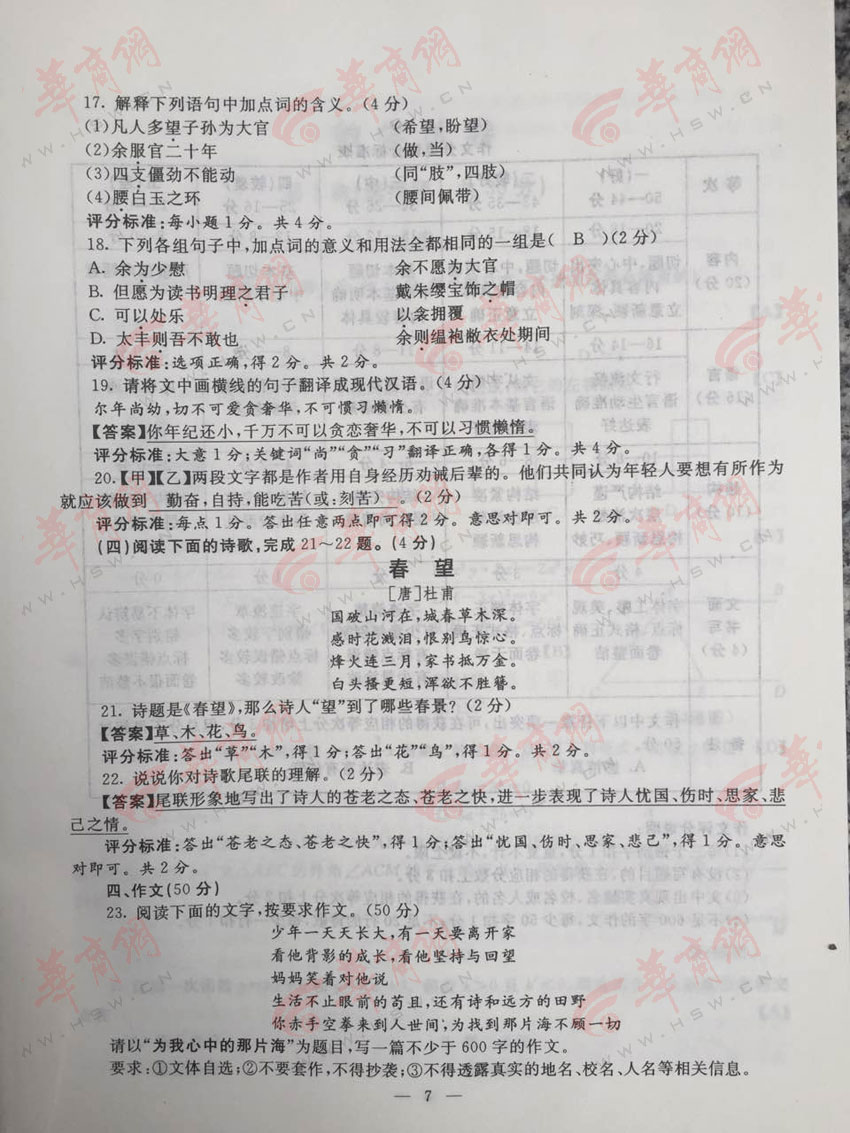 17. 解释下列语句中加点词的含义。(4分)
(1)凡人多望子孙为大官 (希望,盼望)
(2)余服官二十年 (做,当)
(3)四支僵劲不能动 (同“肢”,四肢)
(4)腰白玉之环 (腰间佩带)
评分标准:每小题1分。共4分。
18. 下列各组句子中,加点词的意义和用法全都相同的一组是( B )(2分)
A. 余为少慰 余不愿为大官
B. 但愿为读书明理之君子 戴朱缨宝饰之帽
C. 可以处乐 以衾拥覆
D. 太丰则吾不敢也 余则缊袍敝衣处期间
评分标准:选项正确,得2分。共2分。
19. 请将文中画横线的句子翻译成现代汉语。(4分)
尔年尚幼,切不可爱贪奢华,不可惯习懒惰。
【答案】你年纪还小,千万不可以贪恋奢华,不可以习惯懒惰。
评分标准:大意1分;关键词“尚”“贪”“习”翻译正确,各得1分。共4分。
20.【甲】【乙】两段文字都是作者用自身经历劝诫后辈的。他们共同认为年轻人要想有所作为
就应该做到 勤奋,自持,能吃苦(或:刻苦) 。(2分)
评分标准:每点1分。答出任意两点即可得2分。意思对即可。共2分。
(四)阅读下面的诗歌,完成21～22题。(4分)
春 望
[唐]杜甫
国破山河在,城春草木深。
感时花溅泪,恨别鸟惊心。
烽火连三月,家书抵万金。
白头搔更短,浑欲不胜簪。
21. 诗题是《春望》,那么诗人“望”到了哪些春景?(2分)
【答案】草、木、花、鸟。
评分标准:答出“草”“木”,得1分;答出“花”“鸟”,得1分。共2分。
22. 说说你对诗歌尾联的理解。(2分)
【答案】尾联形象地写出了诗人的苍老之态、苍老之快,进一步表现了诗人忧国、伤时、思家、悲
己之情。
评分标准:答出“苍老之态、苍老之快”,得1分;答出“忧国、伤时、思家、悲己”,得1分。意思
对即可。共2分。
四、作文(50分)
23. 阅读下面的文字,按要求作文。(50分)
少年一天天长大,有一天要离开家
看他背影的成长,看他坚持与回望
妈妈笑着对他说
生活不止眼前的苟且,还有诗和远方的田野
你赤手空拳来到人世间,为找到那片海不顾一切
请以“为我心中的那片海”为题目,写一篇不少于600字的作文。
要求:①文体自选;②不要套作,不得抄袭;③不得透露真实的地名、校名、人名等相关信息。
— 7 —